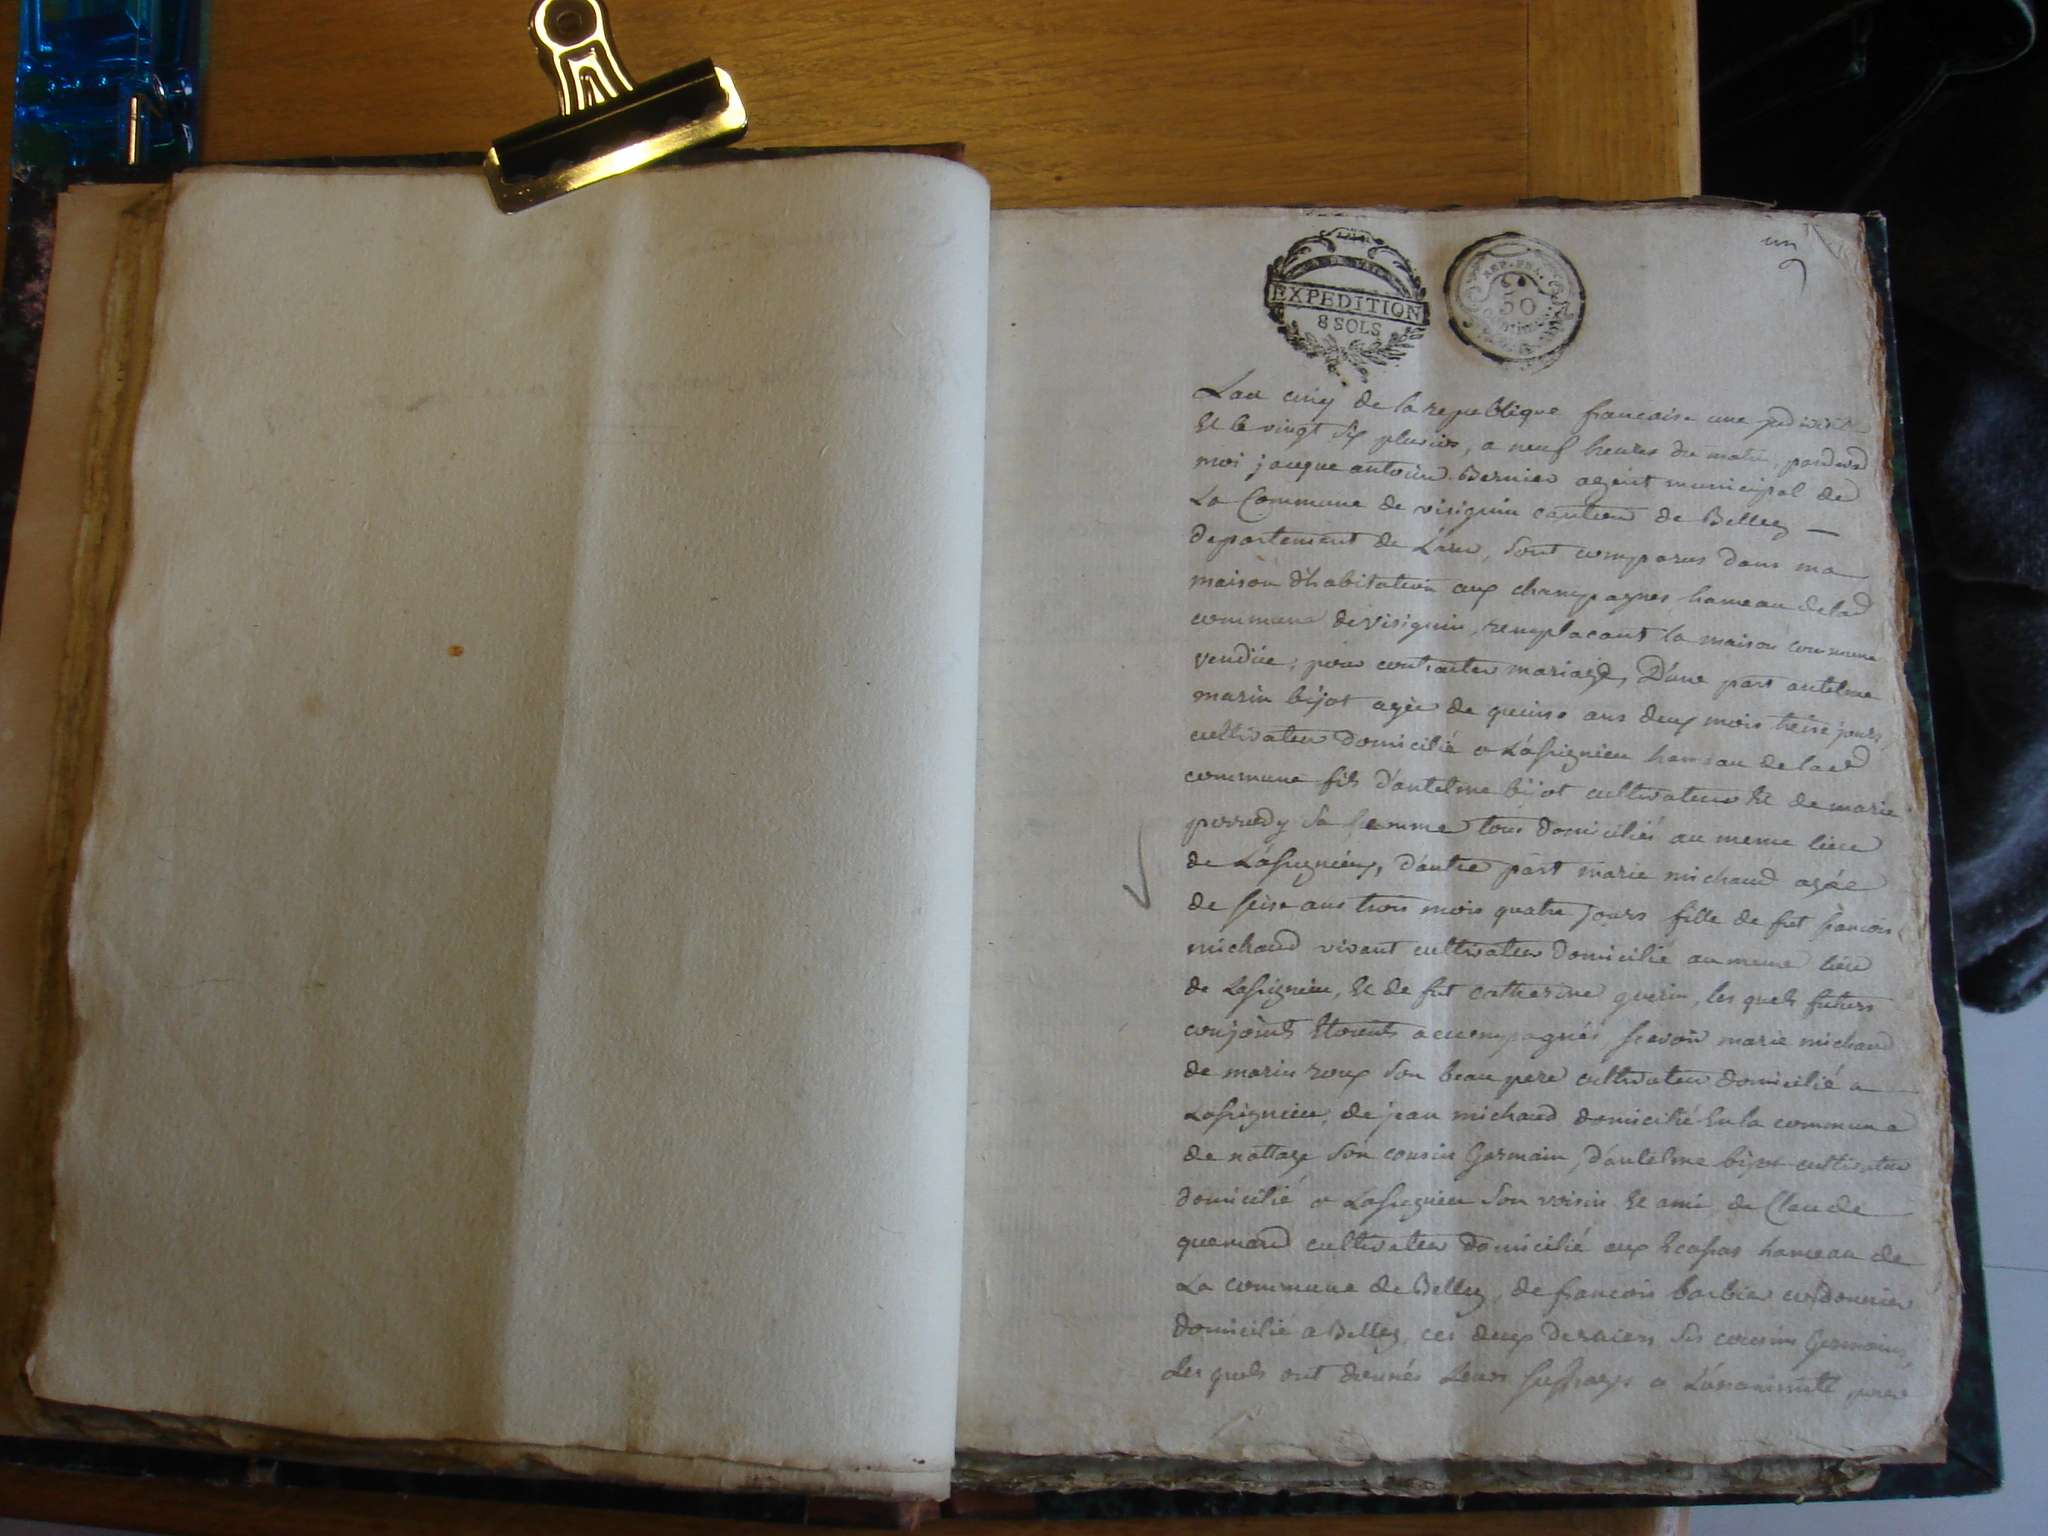 un
EXPEDITION
8 SOLS
REP. FRA.
50
Centimes
Lan cinq de la republique francoise une
Et le vingt six pluvios, a neuf heures du matin, pardevd
moi jacque antoine Bernier agent municipal de
La Commune de virignin canton de Belley
departement de L'ain, sont comparus dans ma
maison d'habitation aux champagnes hameau de lad
commune de virignin, remplacant la maison commune
vendüe, pour contracter mariage, D'une part antelme
marin bijot agée de quinse ans deux mois treise jours,
cultivateur domicilié a Lassignieu hameau de lad
commune fils d'antelme bijot cultivateur Et de marie
sa femme tous domiciliés au meme lieu
de Lassignieu, d'autre part marie michaud agée
de seise ans trois mois quatre jours fille de fut francois
michaud vivant cultivateur domicilié au meme lieu
de Lassignieu, Et de fut catherine guerin, les quels futurs
conjoints Etoients accompagnés scavoir marie michaud
de marin roux son beau pere cultivateur domicilié a
Lassignieu, de jean michaud domicilié En la commune
de nattage son cousin Germain, d'antelme bijot cultivateur
domicilié a Lassignieu son voisin Et ami, de Claude
cultivateur domicilié aux Ecassas hameau de
La commune de Belley, de francois barbier cordonnier
domicilié a Belley, ces deux derniers ses cousins Germains,
Les quels ont donnés Leurs suffrages a L'unanimité, pour